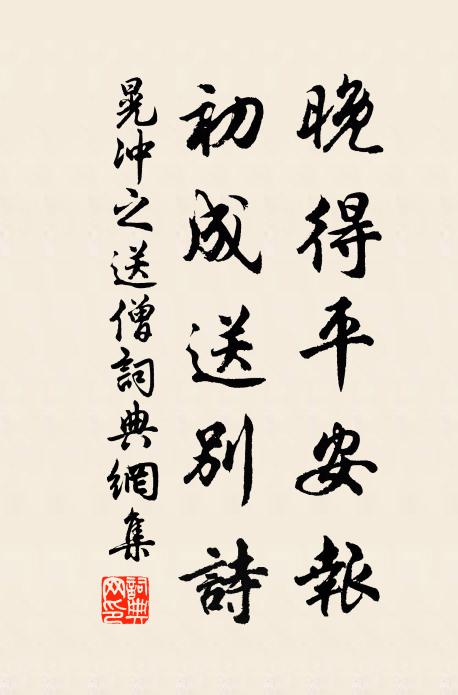 晚得平安報
初成送別詩
晁冲之送僧詞典網集
詞典網印